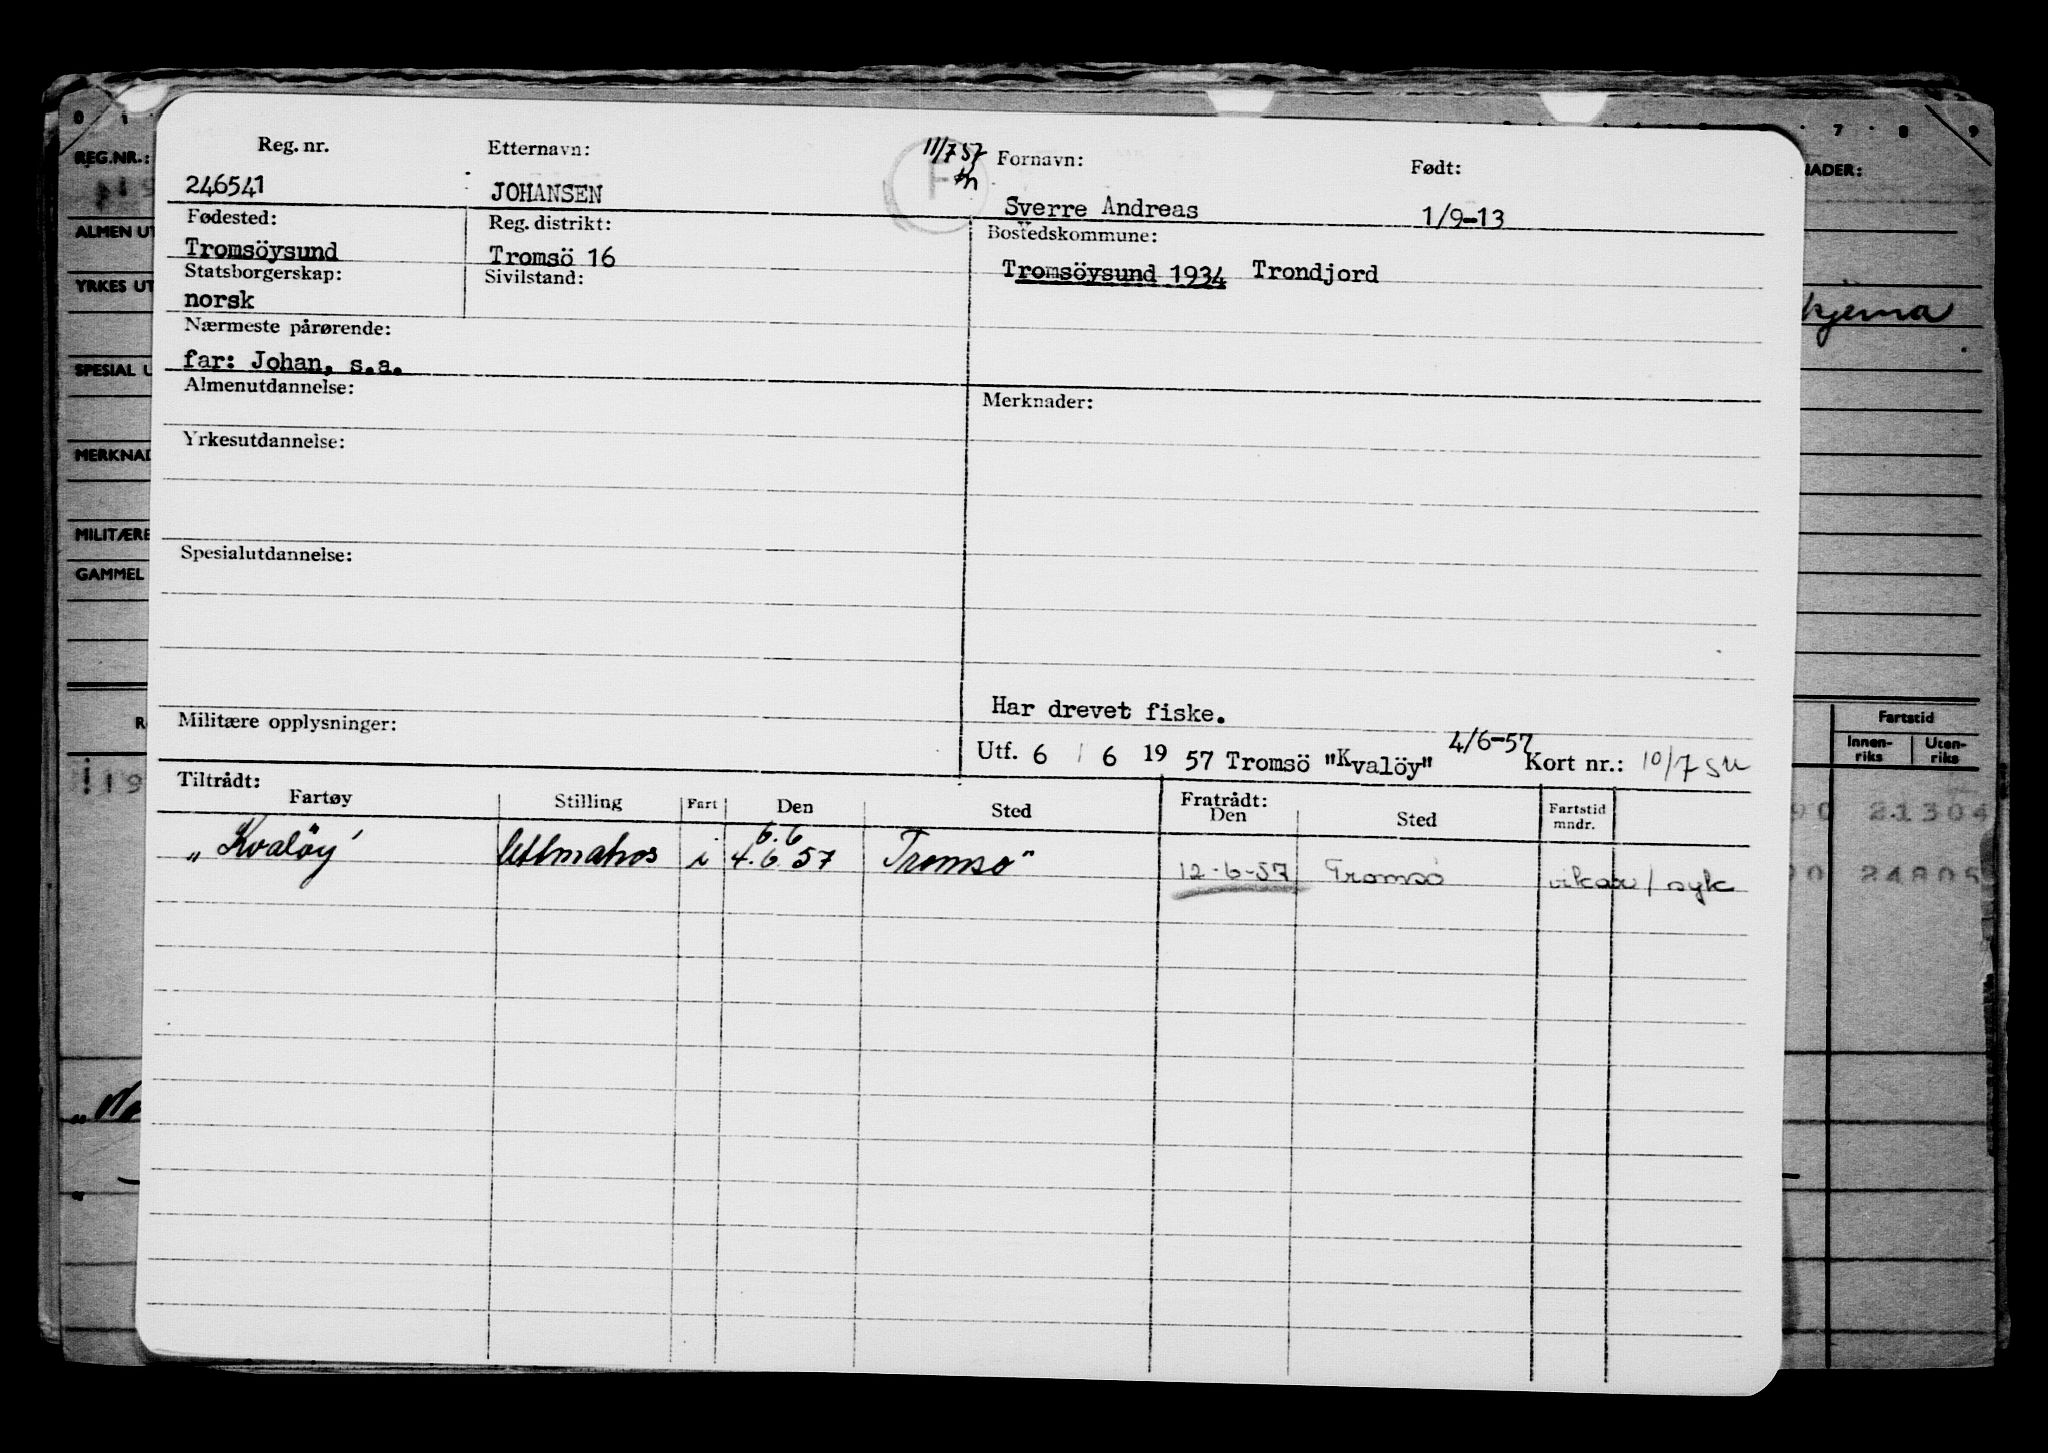 0 1 7 8 9
REG.NR.:
NADER:
Reg. nr. Etternavn: 11/7 57 Fornavn: Født:
F
246541 JOHANSEN Sverre Andreas 1/9-13
Fødested: Reg. distrikt: Bostedskommune:
ALMEN UT
Tromsöysund Tromsö 16 Tromsöysund 1934 Trondjord
Statsborgerskap: Sivilstand:
YRKES UT
norsk
kjema
Nærmeste pårørende:
far: Johan, s.a.
SPESIAL U
Almenutdannelse: Merknader:
Yrkesutdannelse:
MERKNAD
MILITÆRE
Spesialutdannelse:
GAMMEL
Har drevet fiske.
Militære opplysninger:
Fartstid
4/6-57
Utf. 6 / 6 19 57 Tromsö "Kvalöy" Kort nr.: 10/7 su
Innen-riks Uten-riks
Tiltrådt: Fratrådt:
Fartøy Stilling Fart Den Sted Den Sted Fartstid mndr.
90 21304
6.6
„Kvaløy" Utlmatros i 4.6 57 Tromsø 12-6-57 Tromsö vikar / syk
90 24805